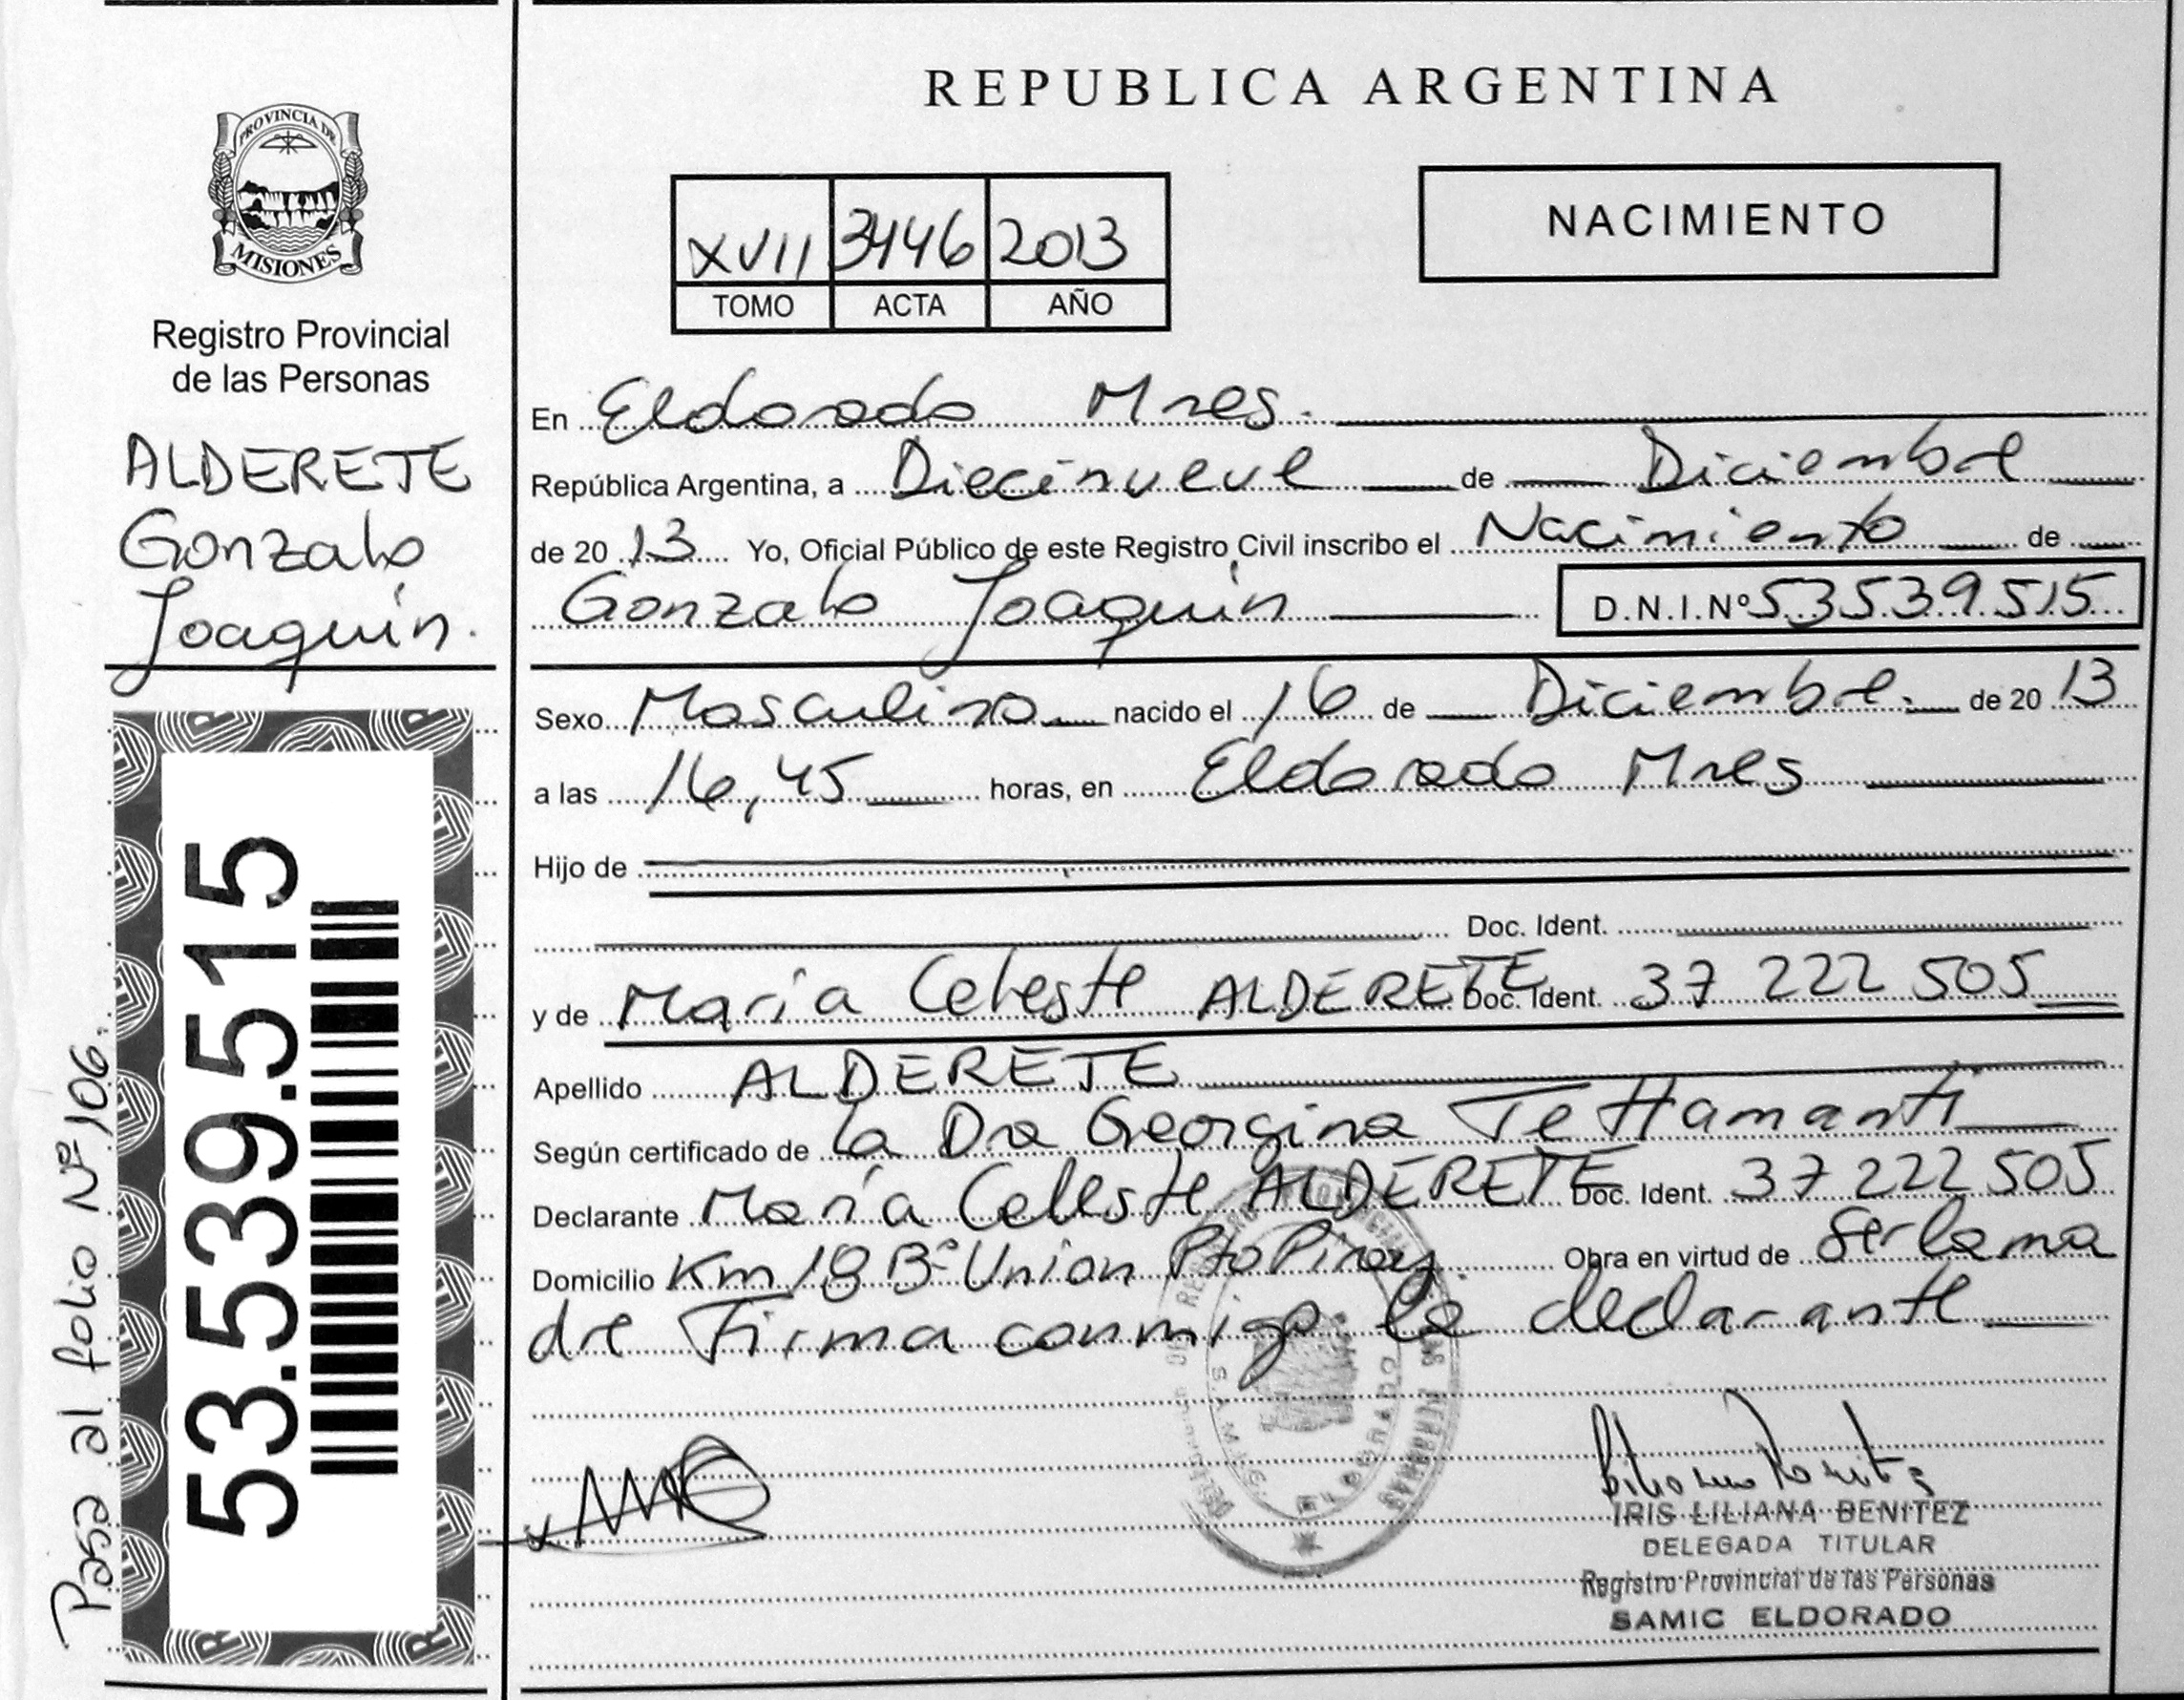 PROVINCIA DE
MISIONES
Registro Provincial
de las Personas
ALDERETE
Gonzalo
Joaquín.
53.539.515
Pasa al folio Nº 106.
REPUBLICA ARGENTINA
XVII 3446 2013
TOMO ACTA AÑO
NACIMIENTO
En Eldorado Mnes.
República Argentina, a Diecinueve de Diciembre
de 20 13 Yo, Oficial Público de este Registro Civil inscribo el Nacimiento de
Gonzalo Joaquín D.N.I.Nº 53539515
Sexo Masculino nacido el 16 de Diciembre. de 20 13
a las 16,45 horas, en Eldorado Mnes
Hijo de
Doc. Ident.
y de María Celeste ALDERETE Doc. Ident. 37 222 505
Apellido ALDERETE
Según certificado de la Dra Georgina Tettamanti
Declarante María Celeste ALDERETE Doc. Ident. 37 222 505
Domicilio Km 18 Bº Union Pto Piray. Obra en virtud de ser la ma
dre Firma conmigo la declarante
ELDORADO
IRIS LILIANA BENITEZ
DELEGADA TITULAR
Registro Provincial de las Personas
SAMIC ELDORADO